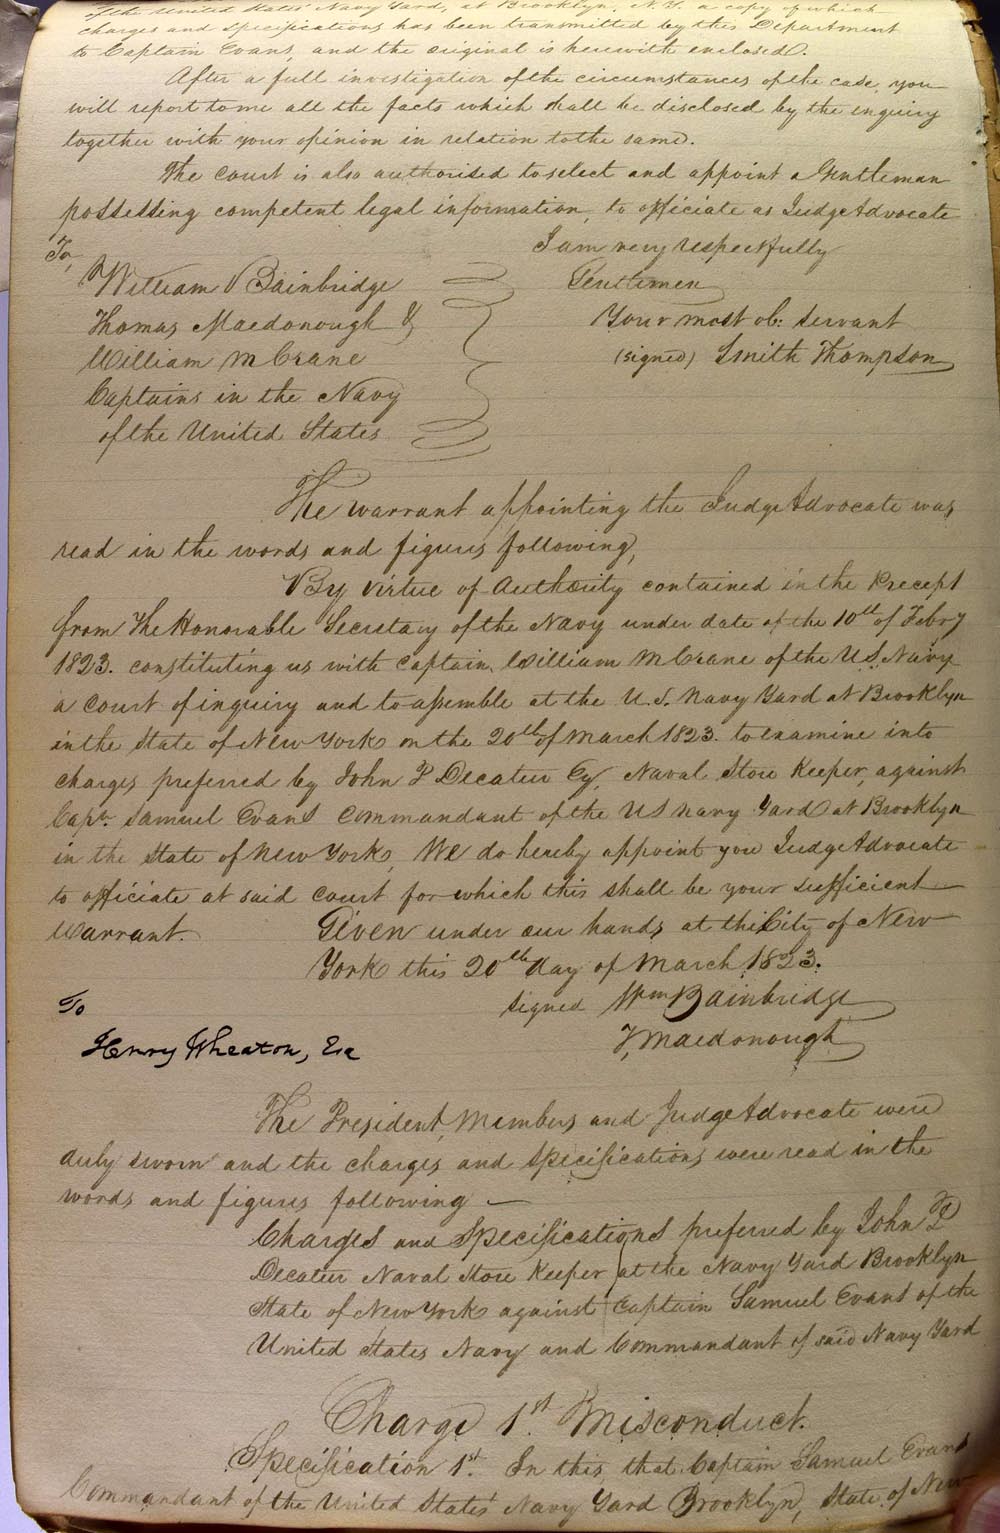 of the United States Navy Yard, at Brooklyn, N.Y. a copy of which
charges and specifications has been transmitted by this Department
to Captain Evans, and the original is herewith enclosed.
After a full investigation of the circumstances of the case, you
will report to me all the facts which shall be disclosed by the enquiry
together with your opinion in relation to the same.
The Court is also authorised to select and appoint a Gentleman
possessing competent legal information, to officiate as Judge Advocate
I am very respectfully
To,
William Bainbridge
Gentlemen
Thomas Macdonough &
Your most ob: servant
William M Crane
(signed) Smith Thompson
Captains in the Navy
of the United States
The warrant appointing the Judge Advocate was
read in the words and figures following,
By virtue of Authority contained in the Precept
from The Honorable Secretary of the Navy under date of the 10th of Febry
1823. constituting us with Captain William M Crane of the U.S. Navy
a Court of inquiry and to assemble at the U.S. Navy Yard at Brooklyn
in the State of New York on the 20th of March 1823. to examine into
charges preferred by John P Decatur Esy, Naval Store Keeper, against
Capn. Samuel Evans Commandant of the US Navy Yard at Brooklyn
in the State of New York, We do hereby appoint you Judge Advocate
to officiate at said Court for which this shall be your sufficient
Warrant. Given under our hands at the City of New
York this 20th day of March 1823.
signed Wm Bainbridge
To
T, Macdonough
Henry Wheaton, Esq
The President, Members and Judge Advocate were
duly sworn and the charges and specifications were read in the
words and figures following —
Charges and Specifications preferred by John P
Decatur Naval Store Keeper at the Navy Yard Brooklyn
State of New York against Captain Samuel Evans of the
United States Navy and Commandant of said Navy Yard
Charge 1st. Misconduct.
Specification 1st. In this, that Captain Samuel Evans
Commandant of the United States' Navy Yard Brooklyn, State of New